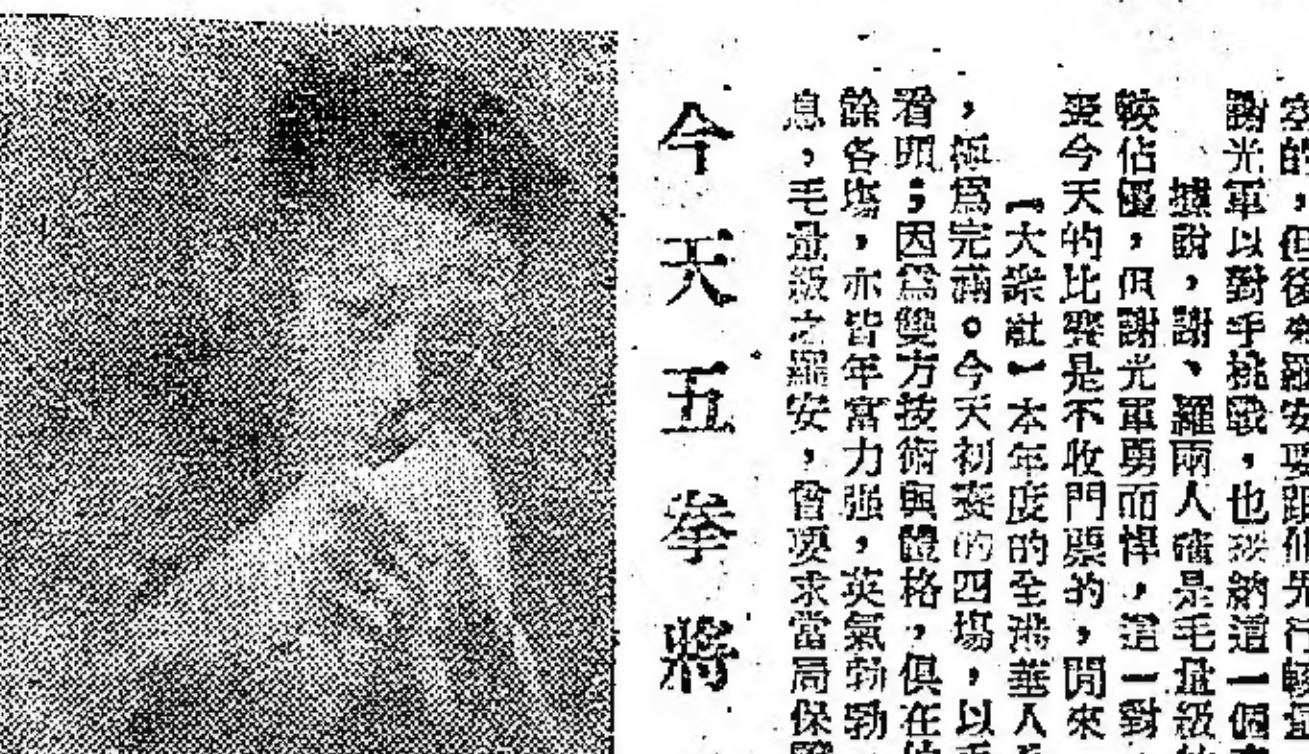 的，但後來羅安要跟他先行較量
謝光軍以對手挑戰，也接納這一個
據說，謝、羅兩人確是毛量級
較佔優，但謝光軍勇而悍，這一對
今天的比賽是不收門票的，閒來
【大眾社】本年度的全港華人
，極爲完滿。今天初賽的四場，以
看頭；因爲雙方技術與體格，俱在
餘各場，亦皆年富力强，英氣勃勃
息，毛量級之羅安，曾要求當局保
今天五拳將